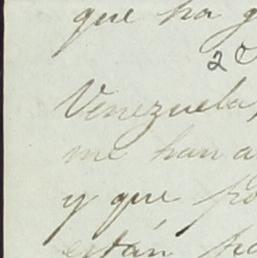 que ha g
2
Venezuela,
me han a
y que
están